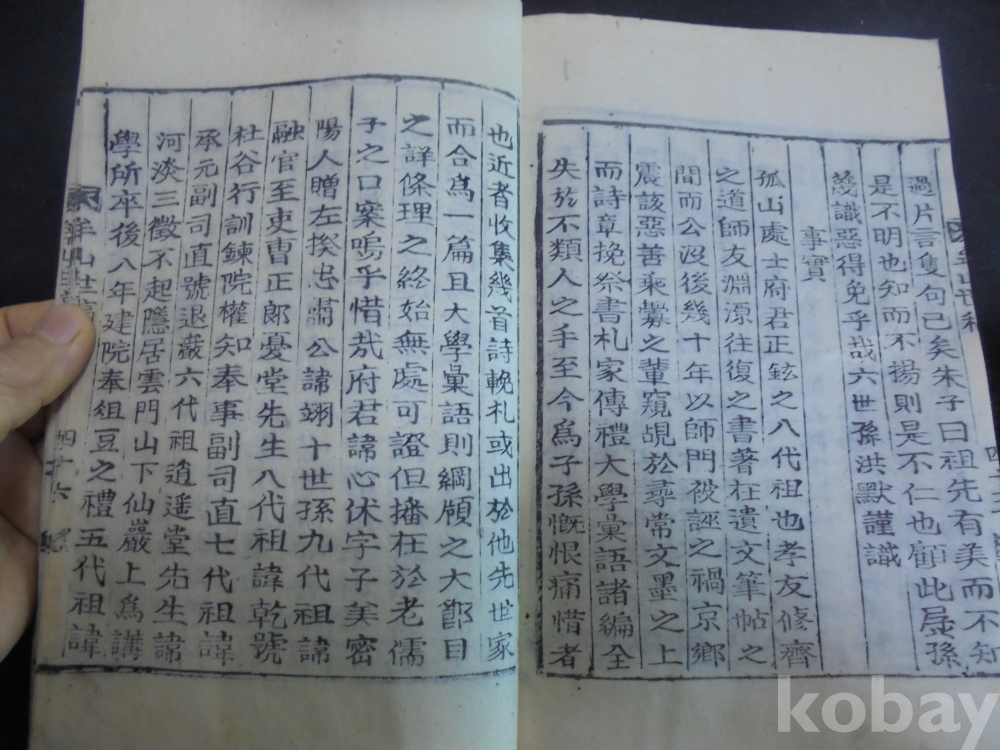 過片言隻句已矣朱子曰祖先有美而不知
是不明也知而不揚則是不仁也顧此孱孫
蔑識惡得免乎哉六世孫洪默謹識
事實
孤山處士府君正鉉之八代祖也孝友修齊
之道師友淵源往復之書著在遺文筆帖之
間而公沒後幾十年以師門被誣之禍京鄉
震該惡善乘釁之輩窺覘於尋常文墨之上
而詩章挽祭書札家傳禮大學彙語諸編全
失於不類人之手至今爲子孫慨恨痛惜者
也近者收集幾首詩輓札或出於他先世家
而合爲一篇且大學彙語則綱領之大節目
之詳條理之終始無處可證但播在於老儒
子之口案嗚乎惜哉府君諱心休字子美密
陽人贈左揆忠肅公諱翊十世孫九代祖諱
融官至吏曹正郎憂堂先生八代祖諱乾號
杜谷行訓鍊院權知奉事副司直七代祖諱
承元副司直號退巖六代祖逍遥堂先生諱
河淡三徵不起隱居雲門山下仙巖上爲講
學所卒後八年建院奉俎豆之禮五代祖諱
山世
四十六
kobay